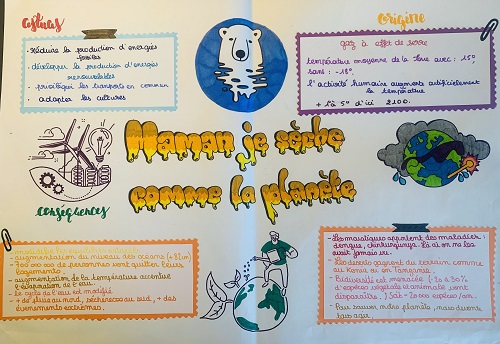 astuces
• Réduire la production d'énergies
fossiles
• développer la production d'énergies
renouvelables
• privilégier les transports en commun
• adapter les cultures
origine
gaz à effet de serre
température moyenne de la Terre avec : 15°
sans : -18°
l'activité humaine augmente artificiellement
la température
+ 1,5° d'ici 2100.
Maman je sèche
comme la planète
conséquences
augmentation du niveau des océans
de personnes vont quitter leurs
logements.
augmentation de la température accentue
l'évaporation de l'eau.
Le cycle de l'eau est modifié
+ de pluie au nord, sécheresse au sud, + des
évènements extrêmes.
• Les moustiques apportent des maladies :
dengue, chikungunya. Là où on ne les
avait jamais vu.
• Les déserts gagnent du terrain comme
au Kenya ou en Tanzanie.
• Biodiversité est menacée (-20 à 30%
d'espèces végétale et animale vont
disparaître.
• Pour sauver notre planète, nous devons
tous agir.